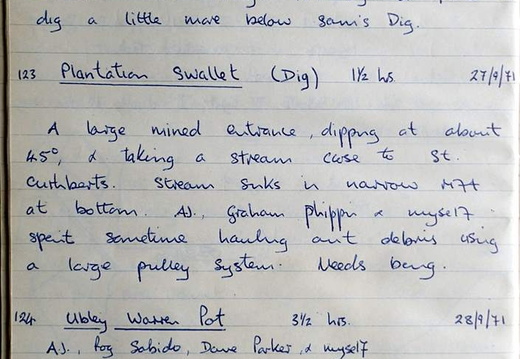 dig a little more below Sam's Dig.
123 Plantation Swallet (Dig) 1½ hrs. 27/9/71
A large mined entrance, dipping at about
45°, & taking a stream close to St.
Cuthberts. Stream sinks in narrow rift
at bottom. AJ., Graham Phippin & myself
spent sometime hauling out debris using
a large pulley system. Needs bang.
124 Ubley Warren Pot 3½ hrs. 28/9/71
AJ., Sabido, Dave Parker, & myself